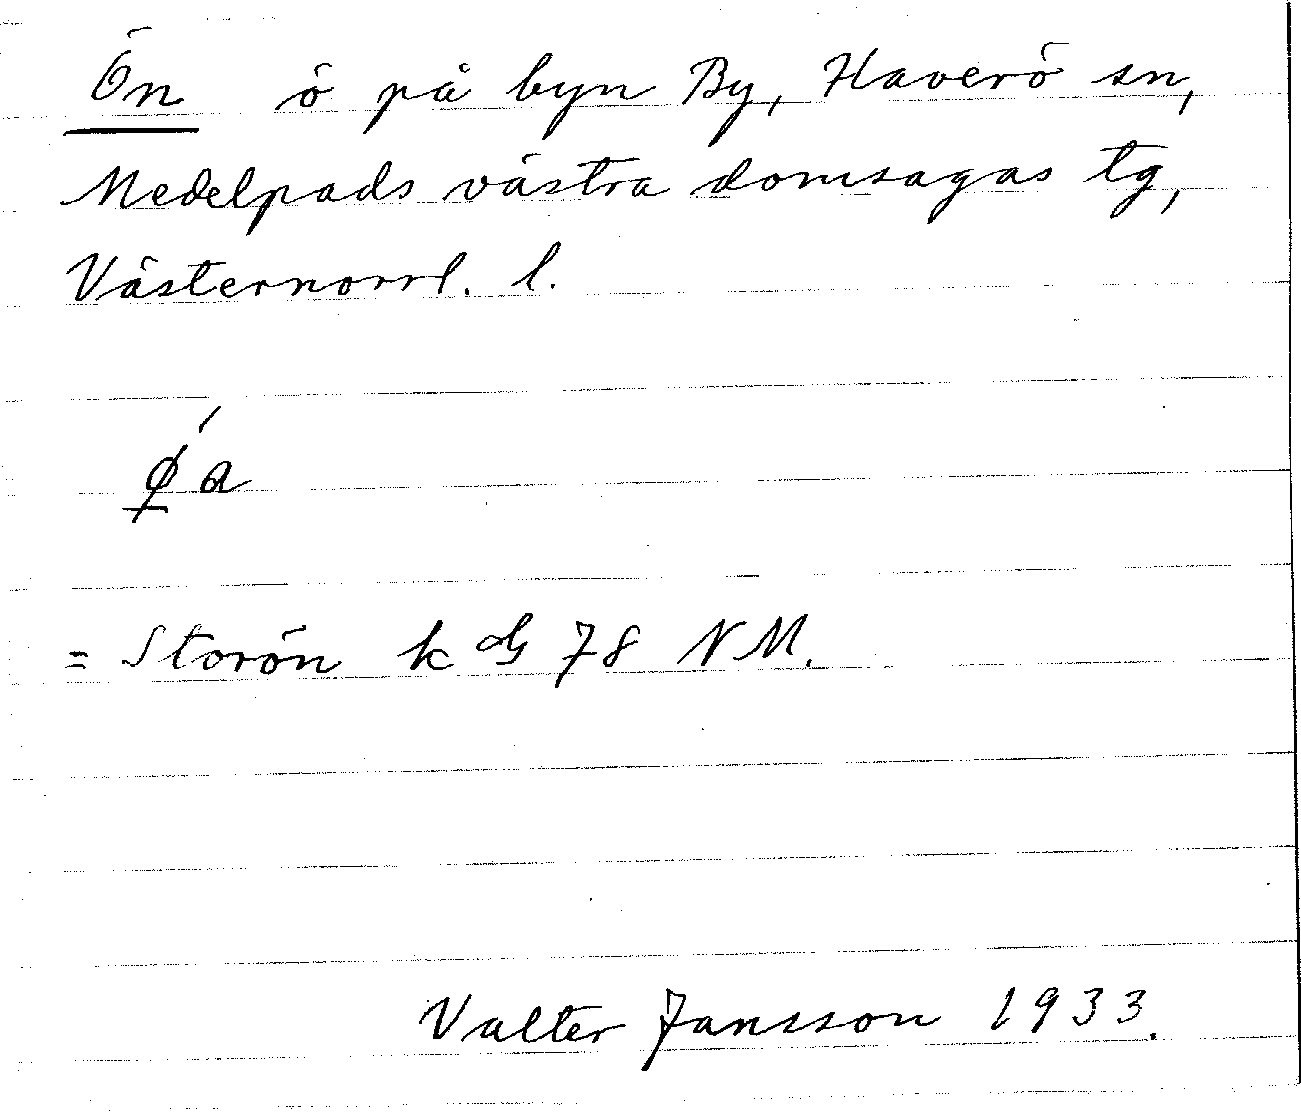 Ön ö på byn By, Haverö sn,
Medelpads västra domsagas tg,
Västernorrl. l.
ǿ̱a
= Storön k bl 78 NM.
Valter Jansson 1933.